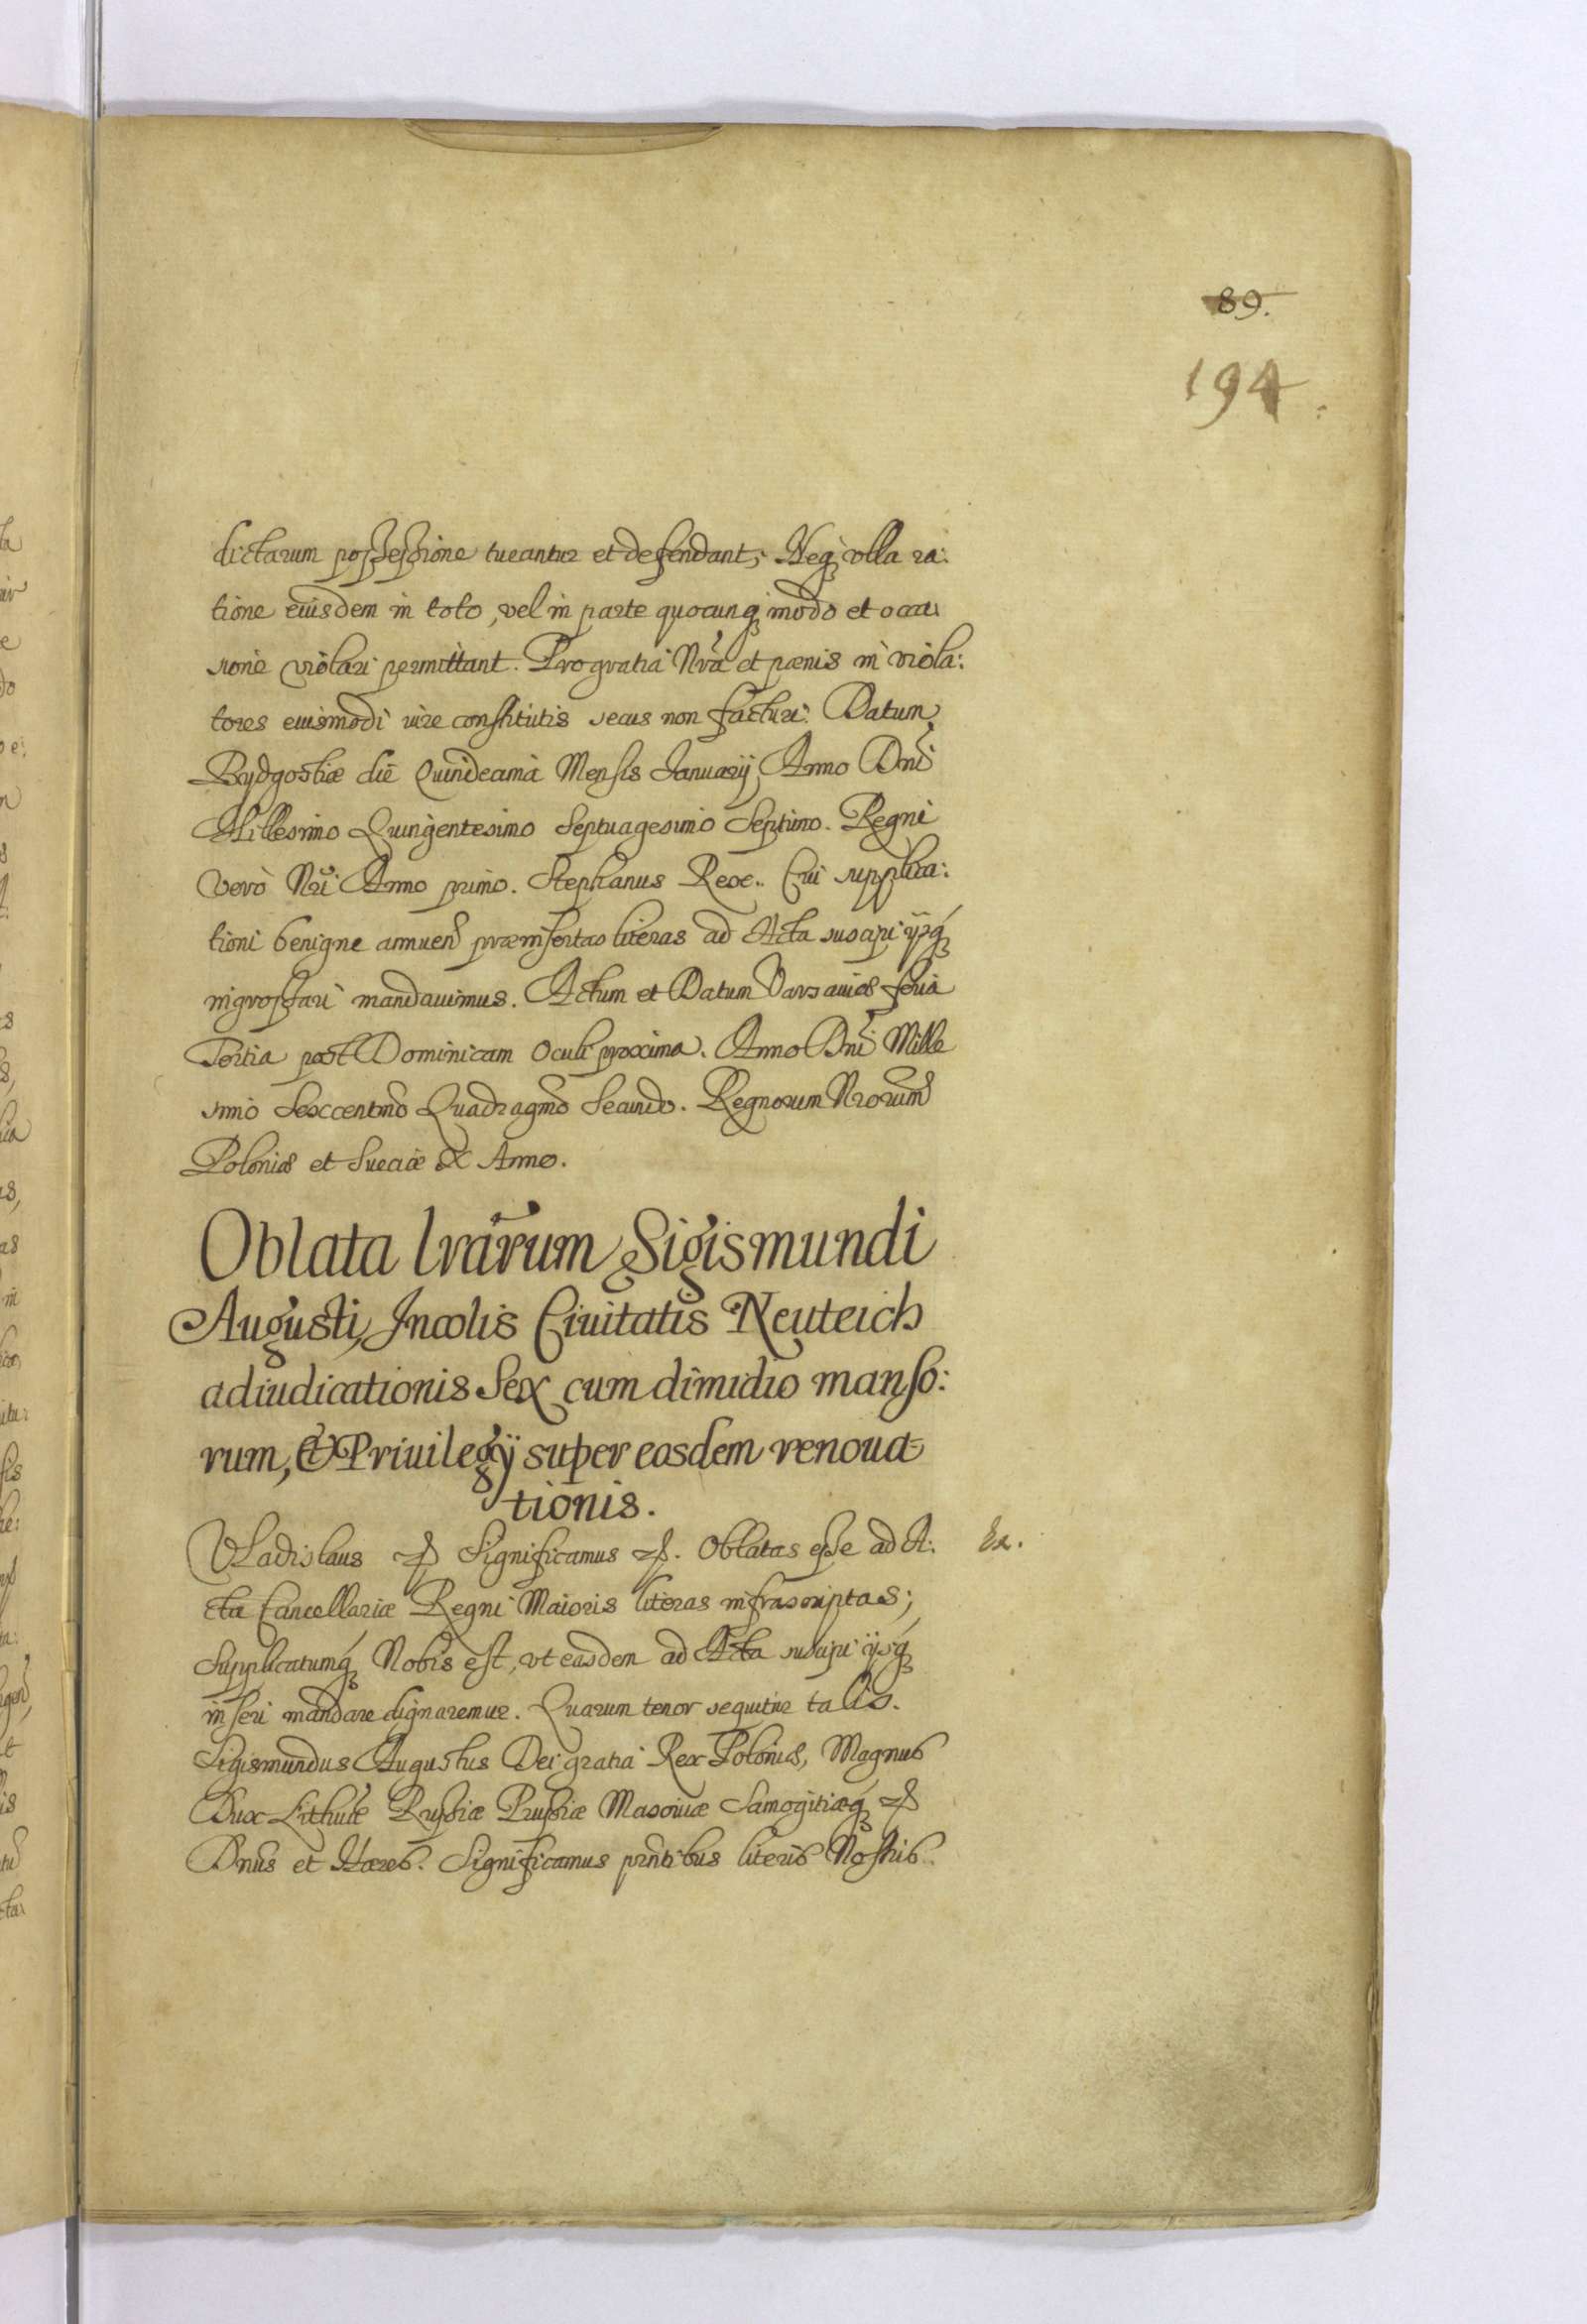 89.
194
dictarum possessione tueantur et defendant, Neq; vlla ra:
tione eiusdem in toto, vel in parte quocunq; modo et occa:
sione violari permittant. Pro gratia Nra et pœnis in viola:
tores eiusmodi iure constitutis secus non facturi. Datum
Bydgostiæ die Quindecima Mensis Januarij, Anno Dni
Millesimo Quingentesimo Septuagesimo Septimo. Regni
Vero Nri Anno primo. Stephanus Rex. Cui supplica:
tioni benigne annuen præinsertas literas ad Acta suscipi ijsq;
ingrossari mandauimus. Actum et Datum Varsauiæ feria
Tertia post Dominicam Oculi proxima. Anno Dni Mille
simo Sexcentmo Quadragmo Secundo. Regnorum Nrorum
Poloniæ et Sueciæ X Anno.
Oblata lrarum Sigismundi
Augusti, Incolis Ciuitatis Neuteich
adiudicationis Sex cum dimidio manso:
rum, & Priuilegÿ super easdem renoua
tionis.
Vladislaus Significamus Oblatas esse ad A:
cta Cancellariæ Regni Maioris literas infrascriptas;
Supplicatumq; Nobis est, vt easdem ad Acta suscipi ijsq;
inseri mandare dignaremur. Quarum tenor sequitur talis.
Sigismundus Augustus Dei gratia Rex Poloniæ, Magnus
Dux Lithuæ Russiæ Prussiæ Masouiæ Samogitiæq;
Dnus et Hæres. Significamus prntibus literis Nostris.